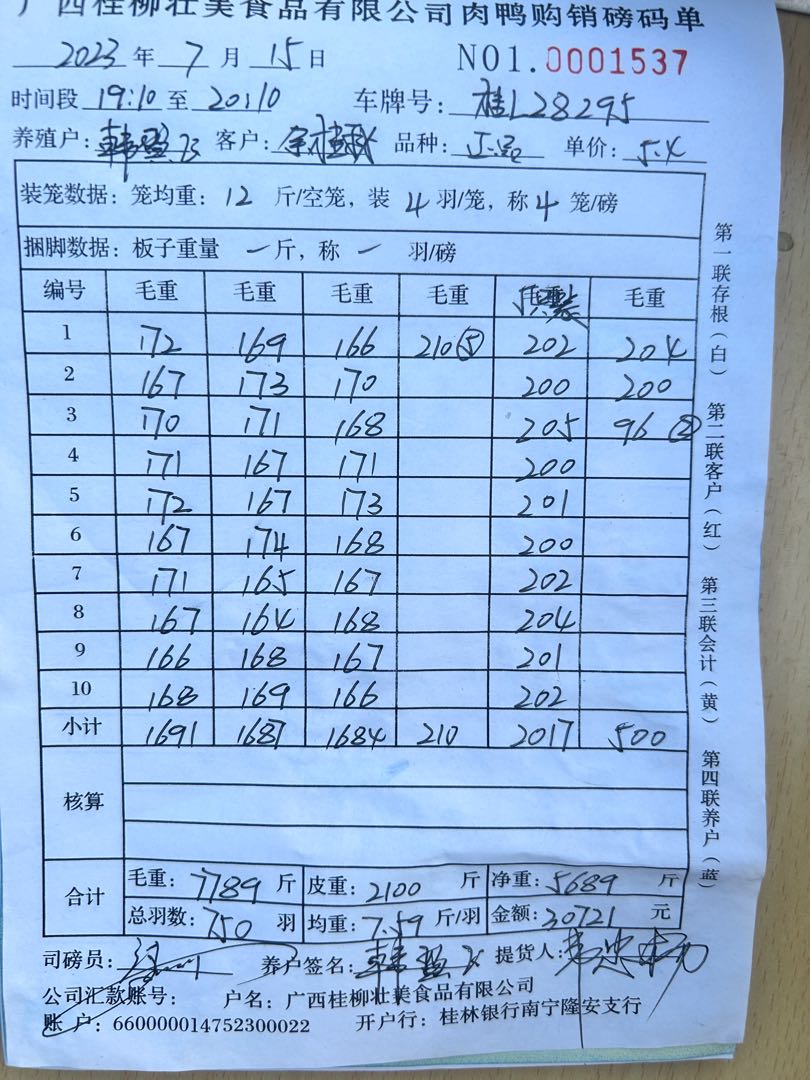 广西桂柳壮美食品有限公司肉鸭购销磅码单
2023 年 7 月 15 日 NO1.0001537
时间段 19:10 至 20:10 车牌号: 桂L28295
养殖户: 韩 客户: 品种: 正品 单价: 5.4
装笼数据: 笼均重: 12 斤/空笼, 装 4 羽/笼, 称 4 笼/磅
捆脚数据: 板子重量 一 斤, 称 一 羽/磅
编号 毛重 毛重 毛重 毛重 毛重 毛重
1 172 169 166 210⑤ 202 204
2 167 173 170 200 200
3 170 171 168 205 96②
4 171 167 171 200
5 172 167 173 201
6 167 174 168 200
7 171 165 167 202
8 167 164 168 204
9 166 168 167 201
10 168 169 166 202
小计 1691 1687 1684 210 2017 500
核算
合计 毛重: 7789 斤 皮重: 2100 斤 净重: 5689 斤
总羽数: 750 羽 均重: 7.59 斤/羽 金额: 30721 元
司磅员: 养户签名: 韩 提货人:
公司汇款账号: 户名: 广西桂柳壮美食品有限公司
账 户: 660000014752300022 开户行: 桂林银行南宁隆安支行
第一联存根(白) 第二联客户(红) 第三联会计(黄) 第四联养户(蓝)